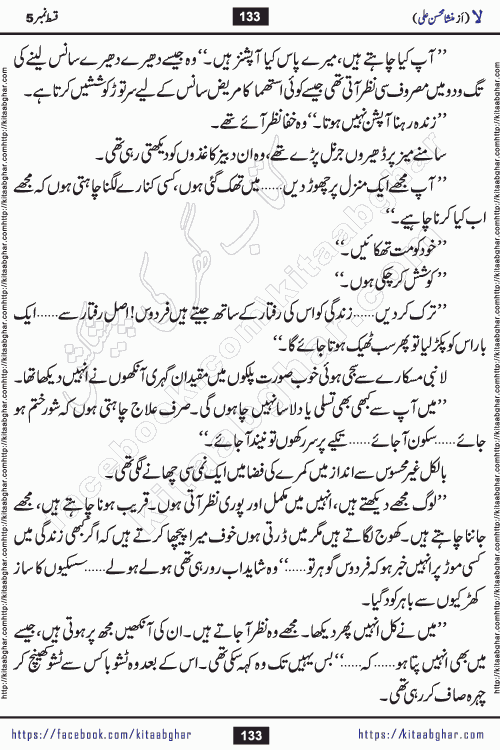 لا (از منشا محسن علی) 133 قسط نمبر 5
’’آپ کیا چاہتے ہیں، میرے پاس کیا آپشنز ہیں۔‘‘ وہ جیسے دھیرے دھیرے سانس لینے کی
تگ و دو میں مصروف سی نظر آتی تھی جیسے کوئی استھما کا مریض سانس کے لیے سر توڑ کوششیں کرتا ہے۔
’’زندہ رہنا آپشن نہیں ہوتا۔‘‘ وہ خفا نظر آئے تھے۔
سامنے میز پر ڈھیروں جرنل پڑے تھے، وہ ان دبیز کاغذوں کو دیکھتی رہی تھی۔
’’آپ مجھے ایک منزل پر چھوڑ دیں...... میں تھک گئی ہوں، کسی کنارے لگنا چاہتی ہوں کہ مجھے
اب کیا کرنا چاہیے۔‘‘
’’خود کو مت تھکائیں۔‘‘
’’کوشش کر چکی ہوں۔‘‘
’’ترک کر دیں...... زندگی کو اس کی رفتار کے ساتھ جیتے ہیں فردوس! اصل رفتار سے...... ایک
بار اس کو پکڑ لیا تو پھر سب ٹھیک ہوتا جائے گا۔‘‘
لانبی مسکارے سے سجی ہوئی خوب صورت پلکوں میں مقید ان گہری آنکھوں نے انہیں دیکھا تھا۔
’’میں آپ سے کبھی بھی تسلی یا دلاسا نہیں چاہوں گی۔ صرف علاج چاہتی ہوں کہ شور ختم ہو
جائے...... سکون آ جائے...... تکیے پر سر رکھوں تو نیند آ جائے۔‘‘
بالکل غیر محسوس سے انداز میں کمرے کی فضا میں ایک نمی سی چھانے لگی تھی۔
’’لوگ مجھے دیکھتے ہیں، انہیں میں مکمل اور پوری نظر آتی ہوں۔ قریب ہونا چاہتے ہیں، مجھے
جاننا چاہتے ہیں۔ کھوج لگاتے ہیں مگر میں ڈرتی ہوں خوف میرا پیچھا کرتے ہیں کہ اگر بھی زندگی میں
کسی موڑ پر انہیں خبر ہو کہ فردوس گوہر تو......‘‘ وہ شاید اب رو رہی تھی ہولے ہولے...... سسکیوں کا ساز
کھڑکیوں سے باہر کود گیا۔
’’میں نے کل انہیں پھر دیکھا۔ مجھے وہ نظر آ جاتے ہیں۔ ان کی آنکھیں مجھ پر ہوتی ہیں، جیسے
میں بھی انہیں پتا ہو...... کہ......‘‘ بس یہیں تک وہ کہہ سکی تھی۔ اس کے بعد وہ ٹشو باکس سے ٹشو کھینچ کر
چہرہ صاف کر رہی تھی۔
https://facebook.com/kitaabghar 133 https://kitaabghar.com